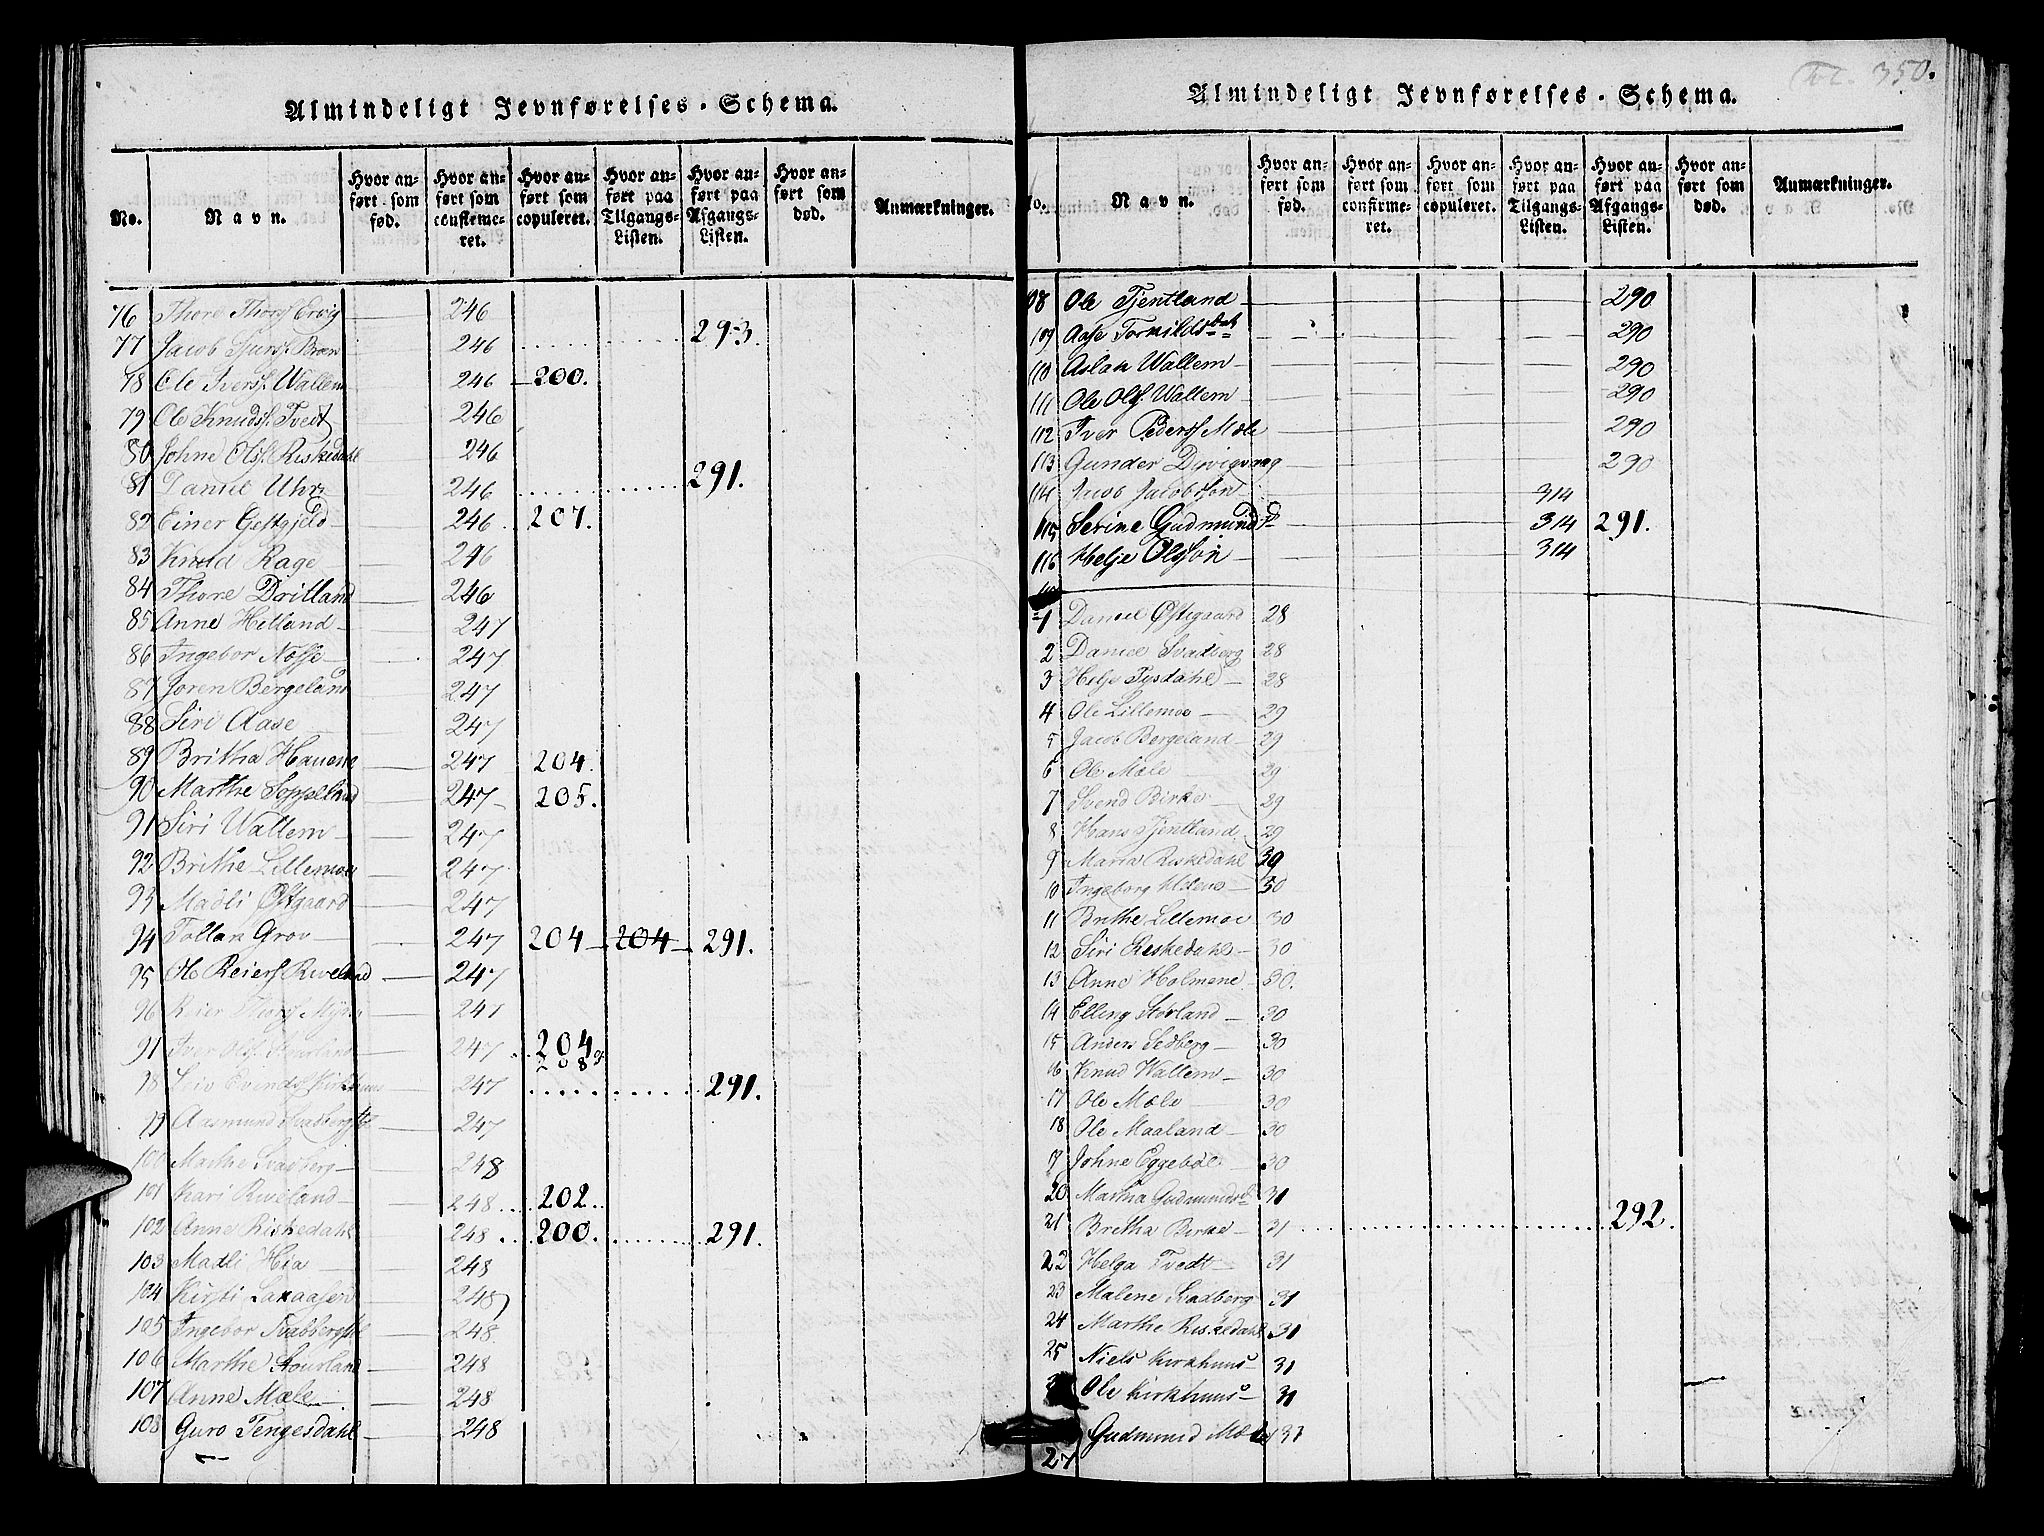 Almindeligt Jevnførelses-Schema.
No. Navn. Hvor anført som fød. Hvor anført som confirmeret. Hvor anført som copuleret. Hvor anført paa Tilgangs-Listen. Hvor anført paa Afgangs-Listen. Hvor anført som død. Anmærkninger.
76 Thore Thorss 246
77 Jacob 246 293.
78 Ole Iverss. Wallem 246 200.
79 Ole Knudss. Tvedt 246
80 Johne Olss. Riskedahl 246
81 Daniel 246 291.
82 Einer 246 207.
83 Knud Rage 246
84 Thore Dritland 246
85 Anne Hetland 247
86 Ingebor 247
87 Joren Bergeland 247
88 Siri Aase 247
89 Britha Hauene 247 204.
90 Marthe 247 205.
91 Siri Wallem 247
92 Brithe Lillemoe 247
93 Madli Østgaard 247
94 Tollak Grov 247 204 204 291.
95 247
96 Reier 247
97 Iver Olss. 247 204 208
98 247 291.
99 Aasmund 247
100 Marthe Svadberg 248
101 Kari Riveland 248 202.
102 Anne Riskedahl 248 200. 291.
103 Madli Hia 248
104 Kirsti 248
105 Ingebor 248
106 Marthe 248
107 Anne Mæle 248
108 Guro Tengesdahl 248
Almindeligt Jevnførelses-Schema. 350.
No. Navn. Hvor anført som fød. Hvor anført som confirmeret. Hvor anført som copuleret. Hvor anført paa Tilgangs-Listen. Hvor anført paa Afgangs-Listen. Hvor anført som død. Anmærkninger.
108 Ole Tjentland 290
109 Aase Torkildsdat 290
110 Aslak Wallem 290
111 Ole Olss. Wallem 290
112 Iver Pederss Mæle 290
113 Gunder 290
114 Jacob Jacobsson 314
115 Serine Gudmundsd 314 291.
116 Helje Olsson 314
1 Daniel Østgaard 28
2 Daniel Svadberg 28
3 Helje Tysdahl 28
4 Ole Lillemoe 29
5 Jacob Bergeland 29
6 Ole Mæle 29
7 Svend Birke 29
8 Hans Tjentland 29
9 Maria Riskedahl 39
10 Ingeborg 30
11 Brithe Lillemoe 30
12 Siri Riskedahl 30
13 Anne Holmene 30.
14 Elling 30
15 Anders Sedberg 30
16 Knud Wallem 30
17 Ole Mæle 30
18 Ole Maaland 30
19 Johne Eggebøe 30
20 Martha Gudmundsd 31
21 Bretha Birke 31 292.
22 Helga Tvedt 31
23 Malene Svadberg 31
24 Marthe Riskedahl 31
25 Niels Kirkhuus 31
Ole Kirkhuus 31
27 Gudmund Mæle 31